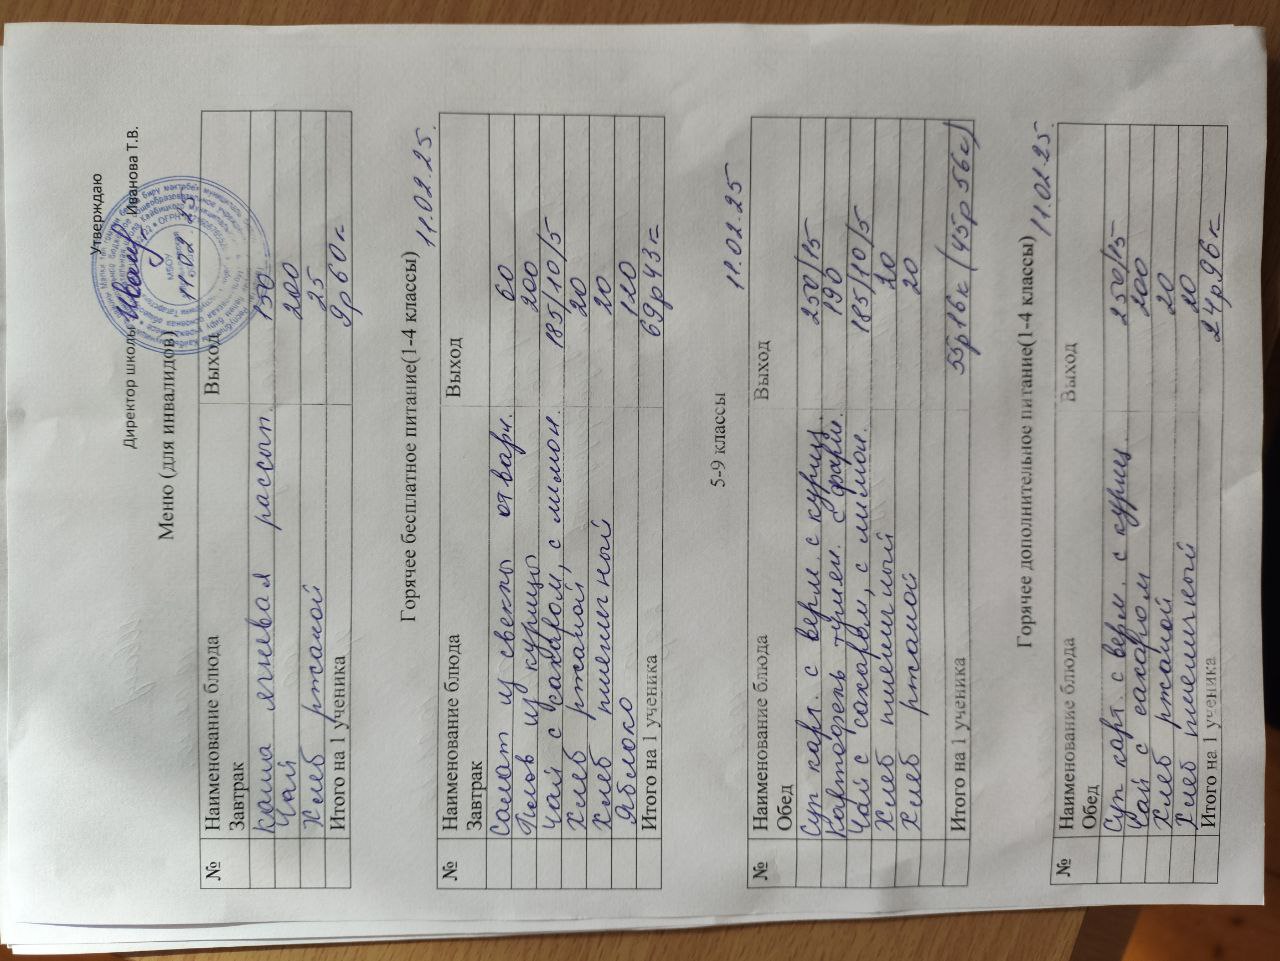 Утверждаю
Директор школы Иванова Т.В.
МБОУ
11.02.25
Меню (для инвалидов)
№ Наименование блюда Выход
Завтрак
Каша ячневая рассып. 150
Чай 200
Хлеб ржаной 25
Итого на 1 ученика 9р 60к
Горячее бесплатное питание(1-4 классы) 11.02.25.
№ Наименование блюда Выход
Завтрак
Салат из свеклы отварн. 60
Плов из курицы 200
Чай с сахаром, с лимон. 185/10/5
Хлеб ржаной 20
Хлеб пшеничный 20
Яблоко 120
Итого на 1 ученика 69р 43к
5-9 классы 11.02.25
№ Наименование блюда Выход
Обед
Суп карт. с верм. с куриц. 250/15
Картофель тушен. с фарш. 190
Чай с сахаром, с лимон. 185/10/5
Хлеб пшеничный 20
Хлеб ржаной 20
Итого на 1 ученика 55р16к (45р 56к)
Горячее дополнительное питание(1-4 классы) 11.02.25.
№ Наименование блюда Выход
Обед
Суп карт. с верм. с куриц. 250/15
Чай с сахаром 200
Хлеб ржаной 20
Хлеб пшеничный 20
Итого на 1 ученика 24р.96к